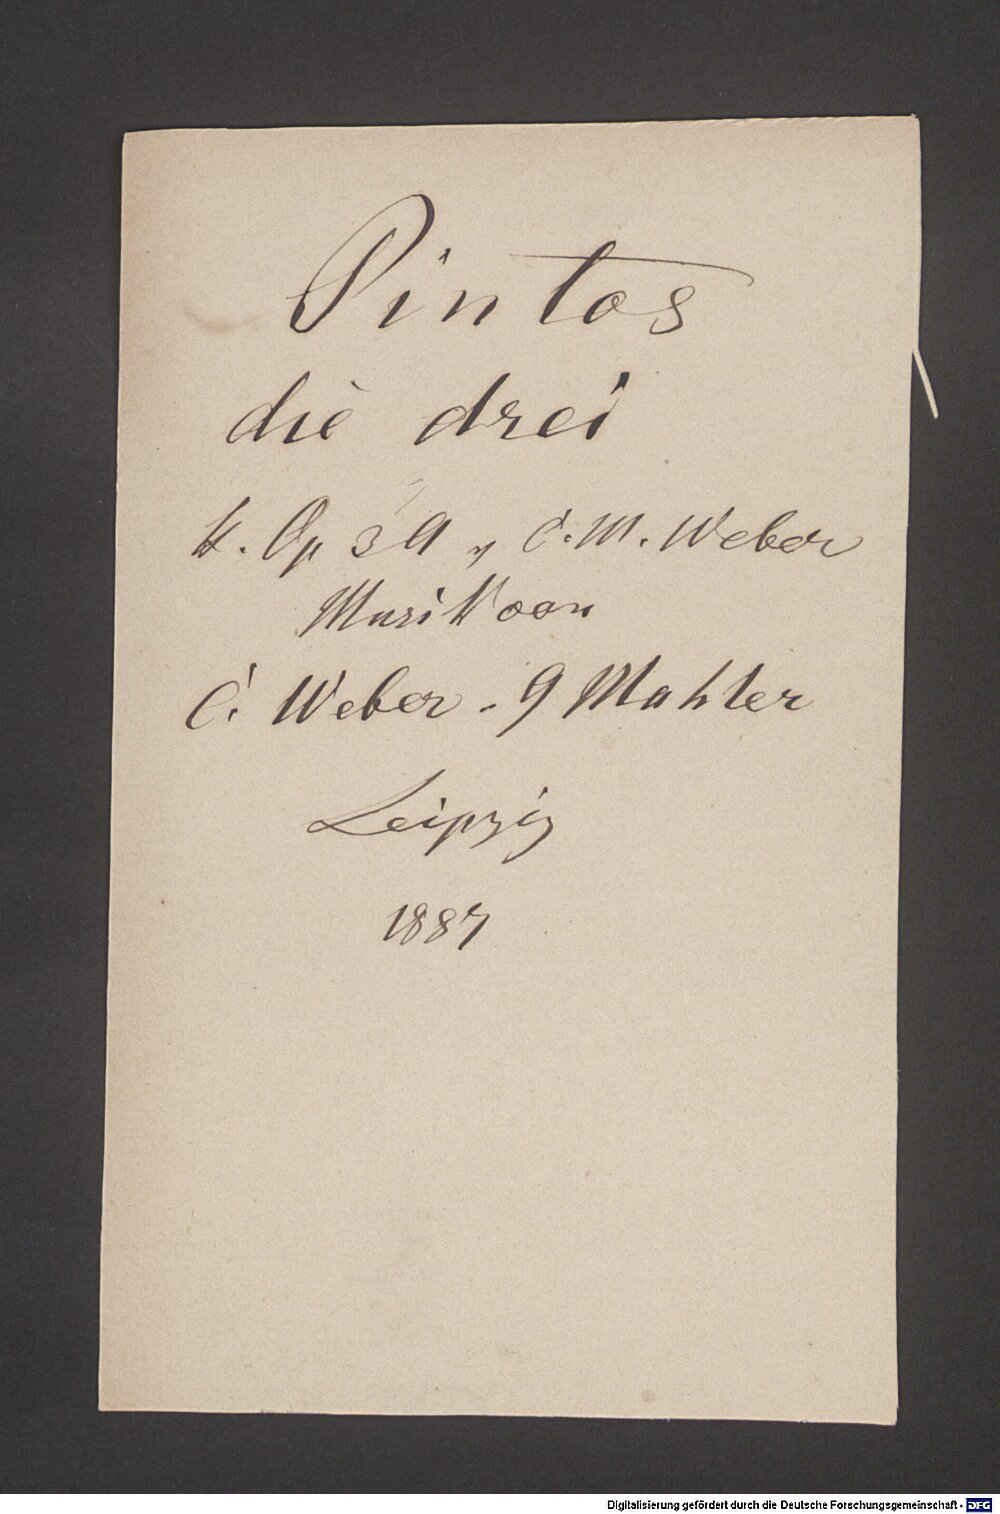 Pintos
die drei
k. Op 3 A v C. M. Weber
Musik von
C. Weber - G Mahler
Leipzig
1887
Digitalisierung gefördert durch die Deutsche Forschungsgemeinschaft - DFG